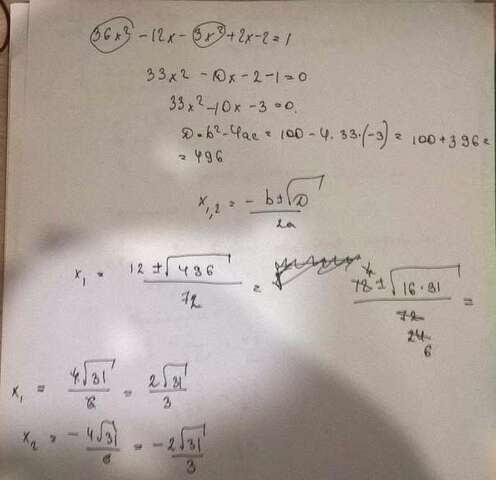 36x² - 12x - 3x² + 2x - 2 = 1
33x² - 10x - 2 - 1 = 0
33x² - 10x - 3 = 0.
D = b² - 4ac = 100 - 4·33·(-3) = 100 + 396 =
= 496
x₁,₂ = - b ± √D / 2a
x₁ = 12 ± √496 / 72 = 12 ± √16·31 / 72 =
24
6
x₁ = 4√31 / 6 = 2√31 / 3
x₂ = - 4√31 / 6 = - 2√31 / 3